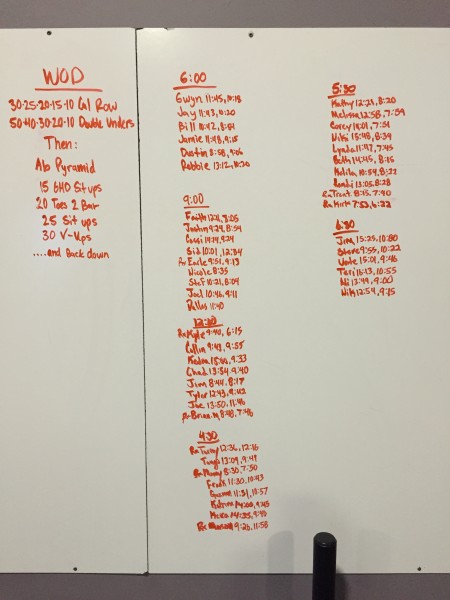 WOD
30-25-20-15-10 Cal Row
50-40-30-20-10 Double Unders
Then:
Ab Pyramid
15 GHD Situps
20 Toes 2 Bar
25 Sit ups
30 V-Ups
....and Back down
6:00
Gwyn 11:45,
Jay 11:43, 10:20
Bill 10:42,
Jamie 11:48, 9:15
Dustin 11:58, 9:06
Robbie 13:12, 10:20
9:00
Faith 12:11, 8:05
Justin 9:24, 8:54
9:24
Sid 10:01, 12:34
Rx Earle 9:51, 9:13
Nicole 8:35
Stef 10:21, 8:04
Joel 10:46, 9:11
11:40
12:10
Rx Kyle 9:40, 6:15
Collin 9:43, 9:55
9:33
Chad 13:54, 9:40
Jim 8:44, 8:17
Tyler 12:43, 9:42
Joe 13:50, 11:46
Rx Brian M 8:48, 7:46
4:30
Rx 12:36, 12:16
13:09, 9:49
Rx 8:30, 7:50
Frank 11:30, 10:43
11:31, 10:57
Katrina 14:00, 9:45
14:35, 9:46
Rx 9:26, 11:58
5:30
Kathy 12:21, 8:20
Melissa 12:58, 7:59
Corey 14:01, 7:51
Niki 15:48, 8:39
Lynda 11:47, 7:45
Beth 14:45, 8:15
10:54, 8:22
13:05, 8:28
Rx Trent 8:15, 7:40
Rx Kirk 7:53, 6:22
6:30
Jim 15:25, 10:80
Steve 9:55, 10:22
15:01, 9:46
Teri 16:13, 10:55
Ali 13:49, 9:00
Nik 12:54, 9:15